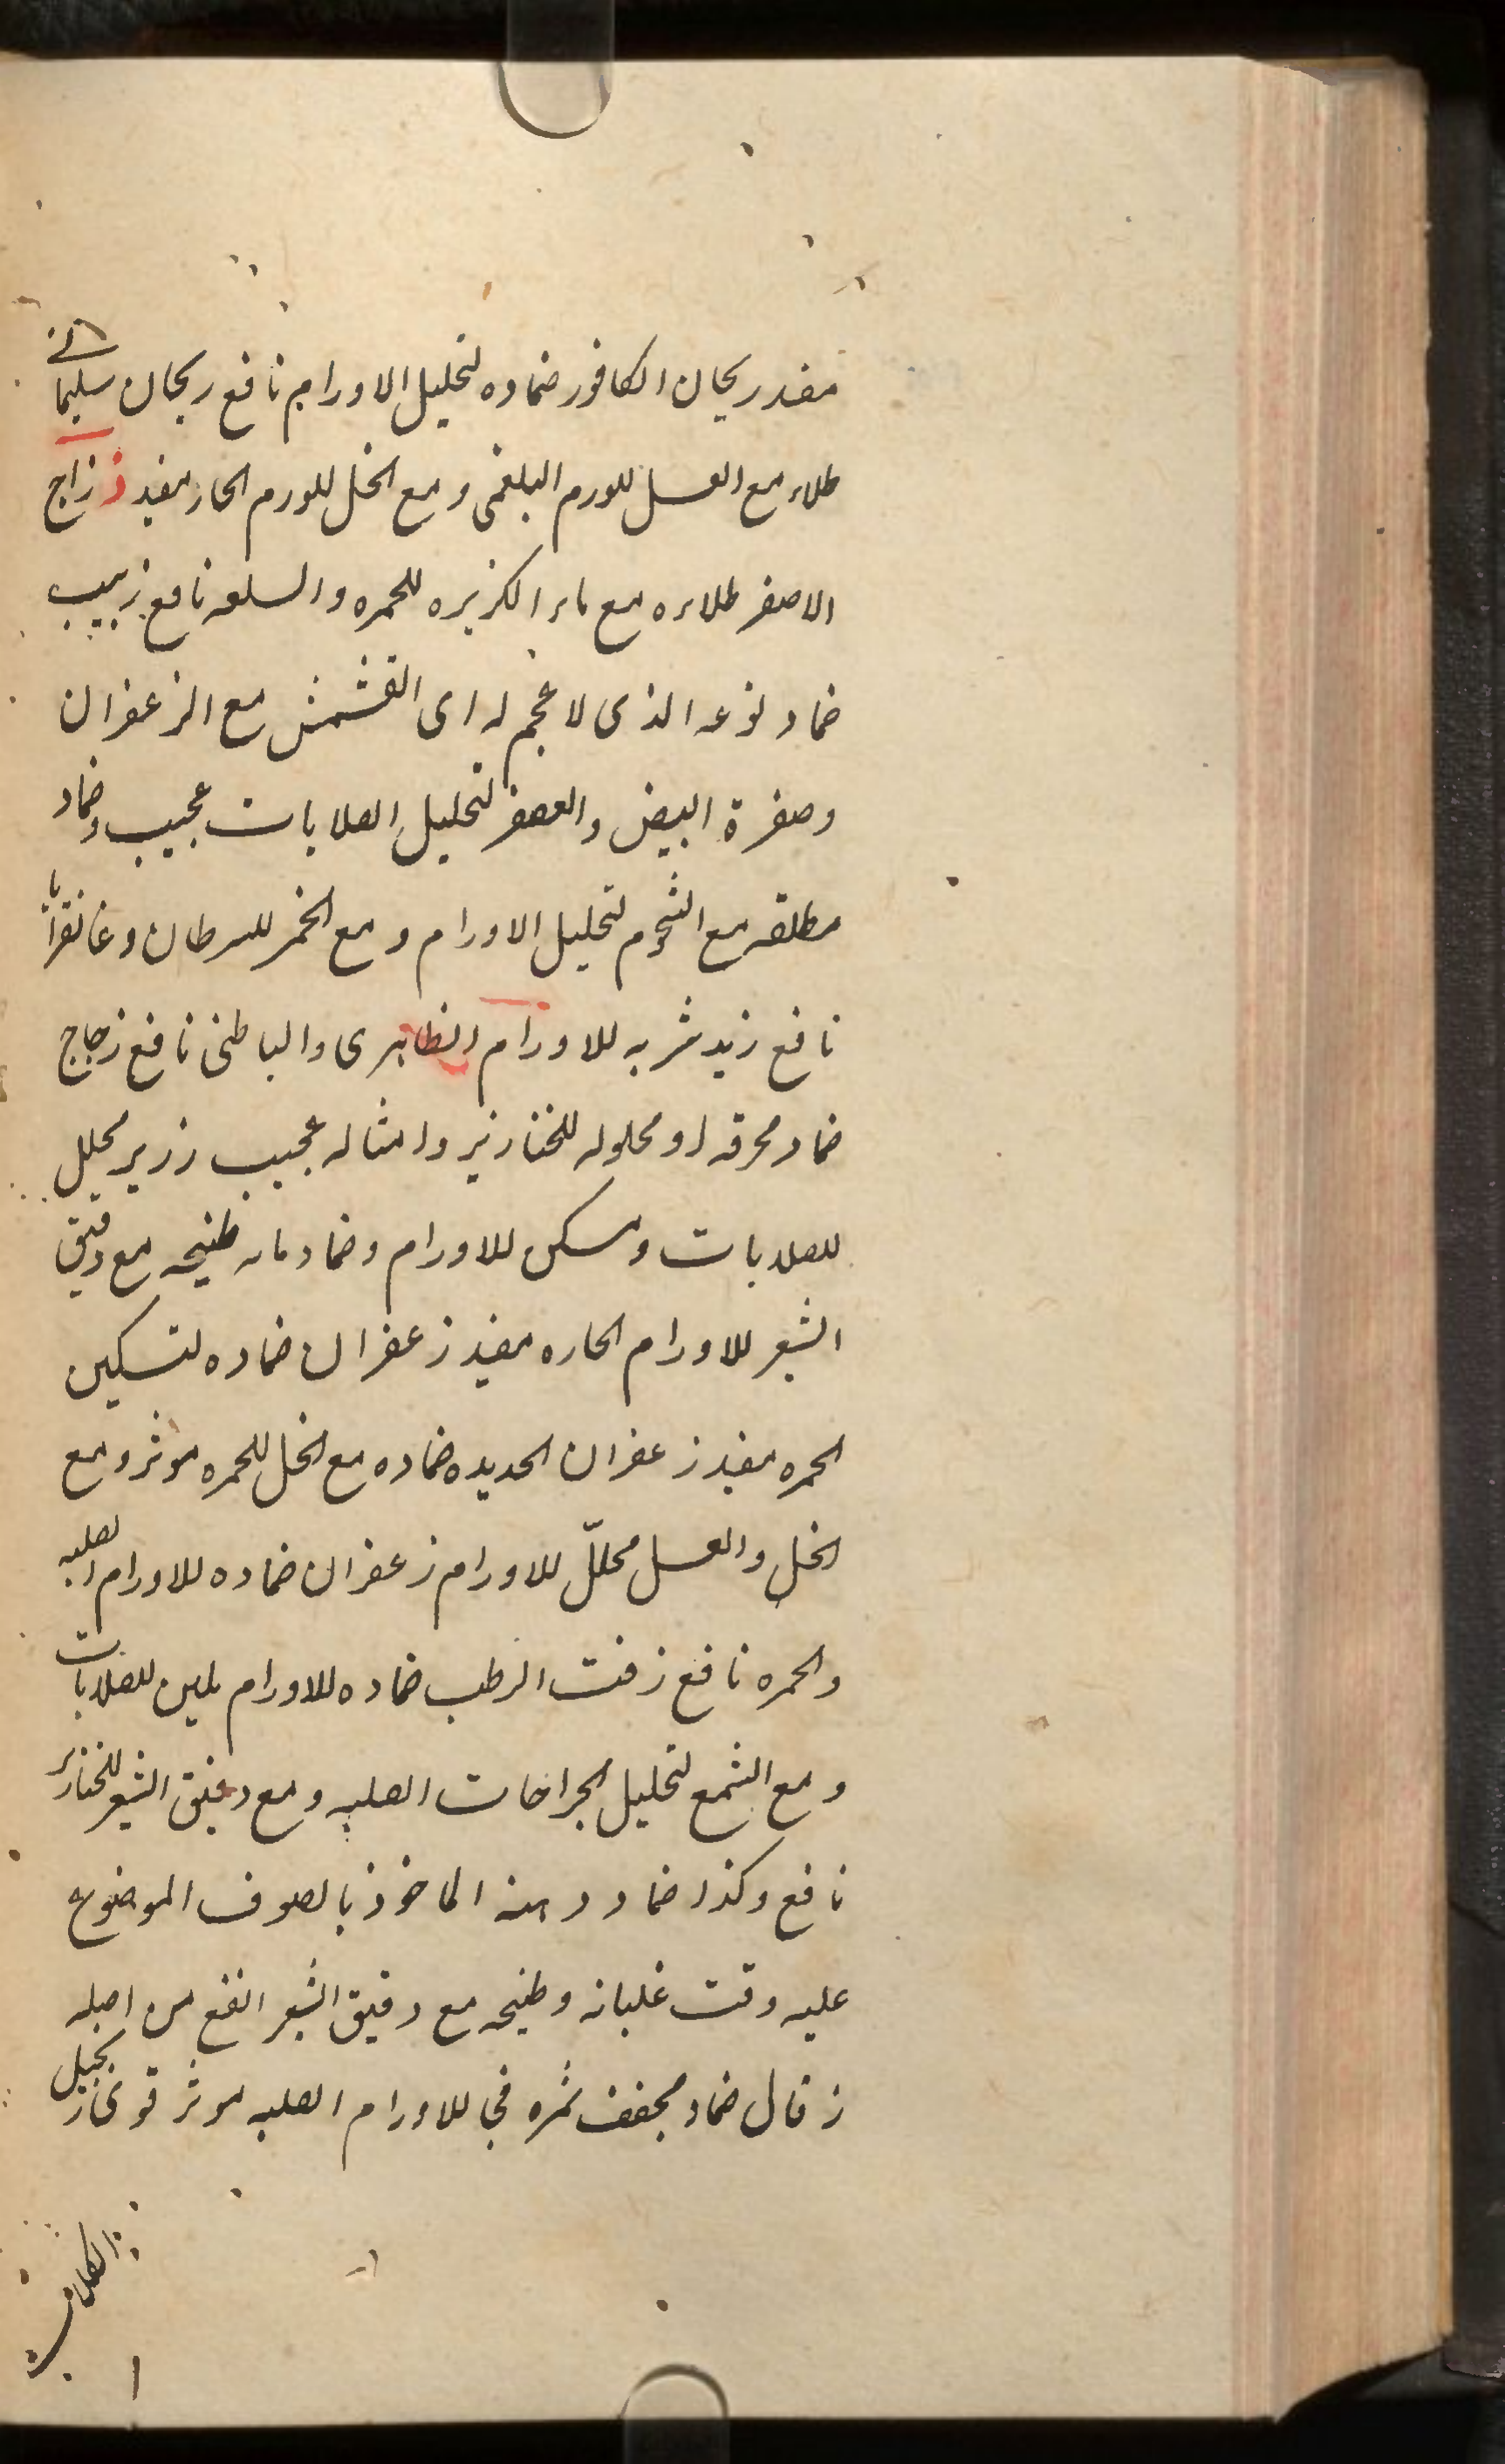 مفید ریحان الکافور ضماده لتحلیل الاورام نافع ریحان سلیمانی
طلاء مع العسل للورم البلغمی و مع الخل للورم الحار مفید ز زاج
الاصفر طلاءه مع ماء الکزبره للحمره والسلعه نافع زبیب
ضماد نوعه الذی لا عجم له ای القشمش مع الزعفران
وصفرة البیض والعصفر لتحلیل الصلابات عجیب وضماد
مطلقه مع الشحوم لتحلیل الاورام و مع الخمر للسرطان و غانقرایا
نافع زبد شربه للاورام الظاهری والباطنی نافع زجاج
ضماد محرقه او محلوله للخنازیر وامثاله عجیب زریر محلل
للصلابات و مسکن للاورام وضماد ماء طبیخه مع دقیق
الشعیر للاورام الحاره مفید زعفران ضماده لتسکین
الحمره مفید زعفران الحدیده ضماده مع الخل للحمره موثر و مع
الخل والعسل محلّل للاورام زعفران ضماده للاورام الصلبه
والحمره نافع زفت الرطب ضماده للاورام ملین للصلابات
و مع الشمع لتحلیل الجراحات الصلبه و مع دقیق الشعیر للخنازیر
نافع وکذا ضماد دهنه الماخوذ بالصوف الموضوع
علیه وقت غلیانه وطبیخه مع دقیق الشعیر انفع من اصله
زقال ضماد مجفف ثمره فی للاورام الصلبه موثر قوی زنجبیل
الکلاب